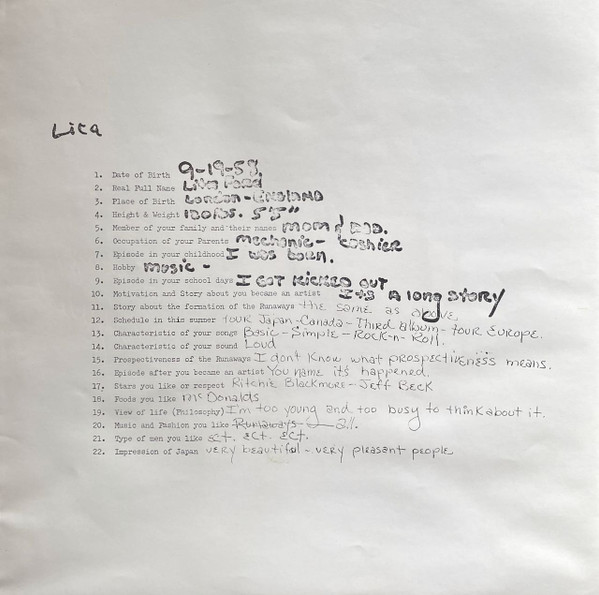 Lita
1. Date of Birth 9-19-58.
2. Real Full Name Lita Ford
3. Place of Birth London-ENGLAND
4. Height & Weight 120 lbs. 5'5"
5. Member of your family and their names mom & DAD.
6. Occupation of your Parents mechanic - cashier
7. Episode in your childhood I was born.
8. Hobby music -
9. Episode in your school days I GOT KICKED OUT
10. Motivation and Story about you became an artist ITS A long STORY
11. Story about the formation of the Runaways the same as above
12. Schedule in this summer TOUR Japan-Canada-Third album-tour EUROPE.
13. Characteristic of your songs Basic-Simple-Rock-n-Roll.
14. Characteristic of your sound Loud
15. Prospectiveness of the Runaways I don't Know what prospectiveness means.
16. Episode after you became an artist You name it's happened.
17. Stars you like or respect Ritchie Blackmore-Jeff Beck
18. Foods you like McDonalds
19. View of life (Philosophy) I'm too young and too busy to think about it.
20. Music and Fashion you like Runaways-
21. Type of men you like ect. ect. ect.
22. Impression of Japan very beautiful - very pleasant people